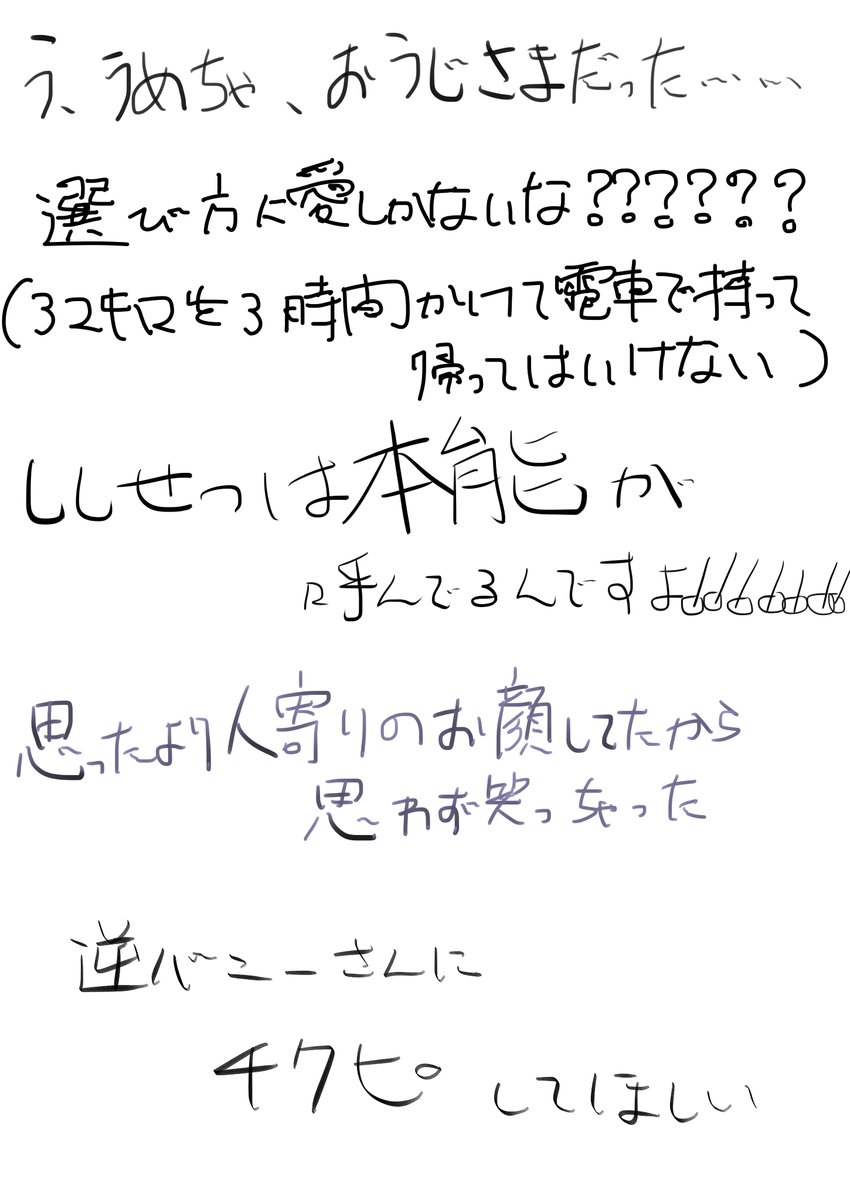 う、うめちゃ、おうじさまだった……
選び方に愛しかないな??????
(32キロを3時間かけて電車で持って
帰ってはいけない)
ししせつは本能が
呼んでるんですよ!!!!!!!
思ったより人寄りのお顔してたから
思わず笑っちゃった
逆バニーさんに
チクピしてほしい